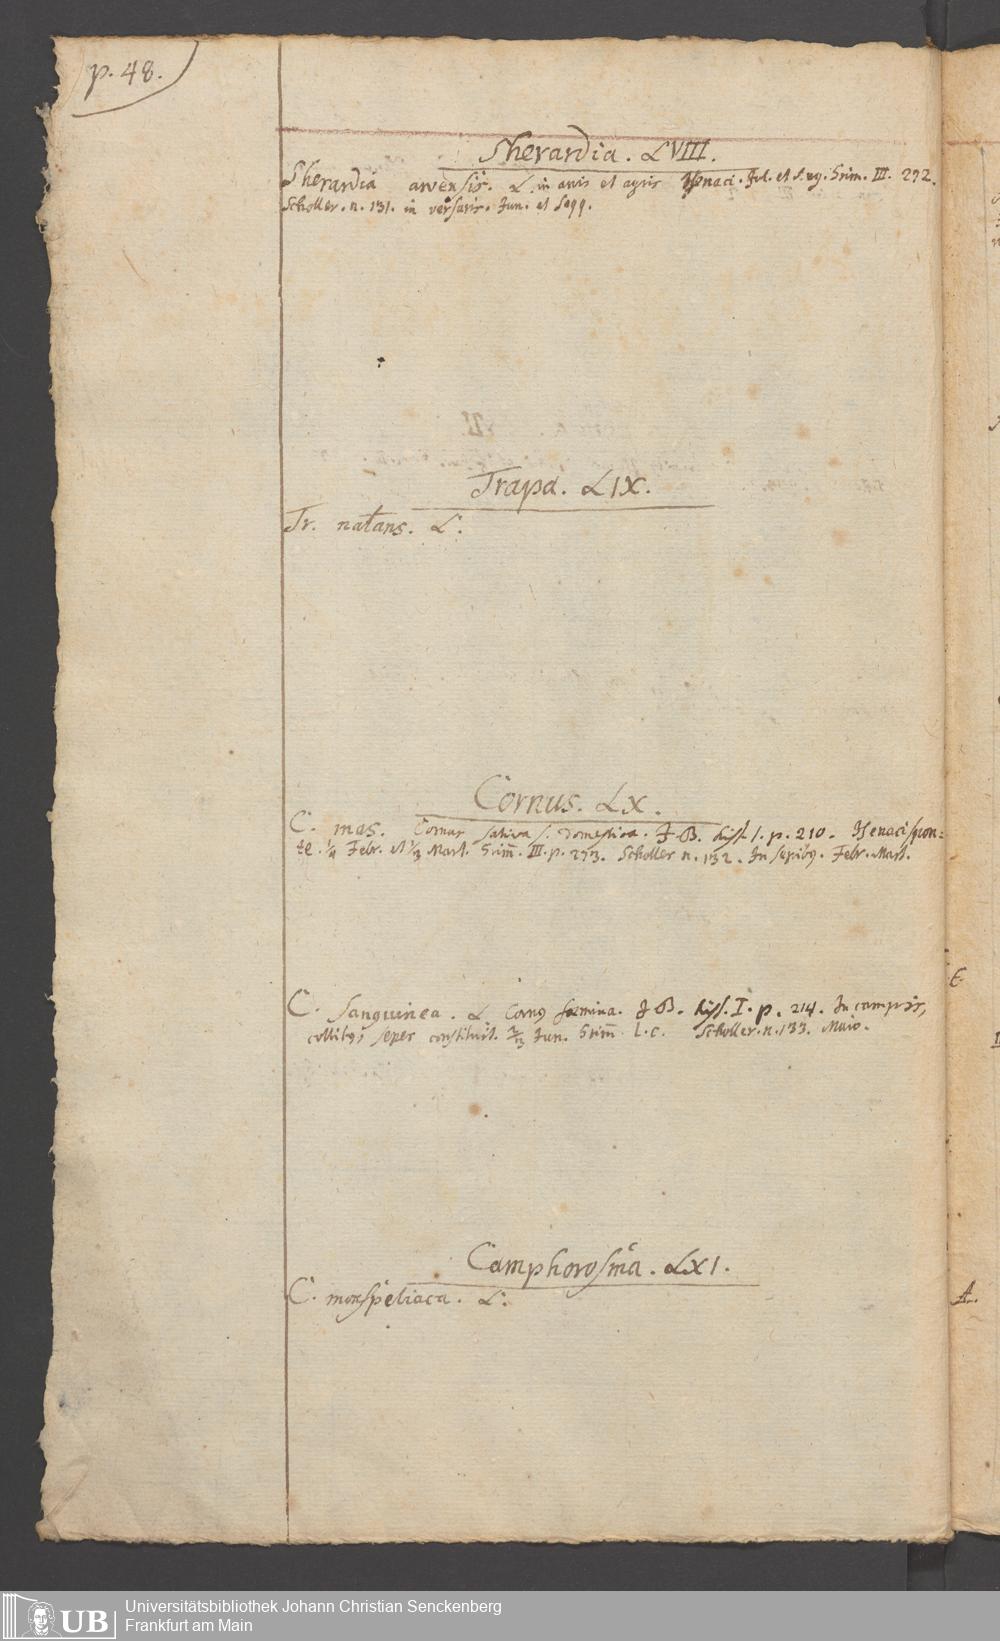 p. 48.
Sherardia. LVIII.
Sherardia arvensis. L. in arvis et agris Isenaci. Jul. et Aug. Grim. III. 272.
Scholler. n. 131. in versuris. Jun. et seqq.
Trapa. LIX.
Tr. natans. L.
Cornus. LX.
C. mas. Cornus sativa s. domestica. J. B. hist. I. p. 210. Isenaci spon=
te. 1/4 Febr. et Mart. Grim̄. III. p. 273. Scholler n. 132. In sepibus. Febr. Mart.
C. sanguinea. L. Cornus fæmina. J B. hist. I. p. 214. In campis,
collibus, sepes constituit. Jun. Grim̄ l. c. Scholler. n. 133. Maio.
Camphorosma. LXI.
C. monspeliaca. L.
UB Universitätsbibliothek Johann Christian Senckenberg
Frankfurt am Main